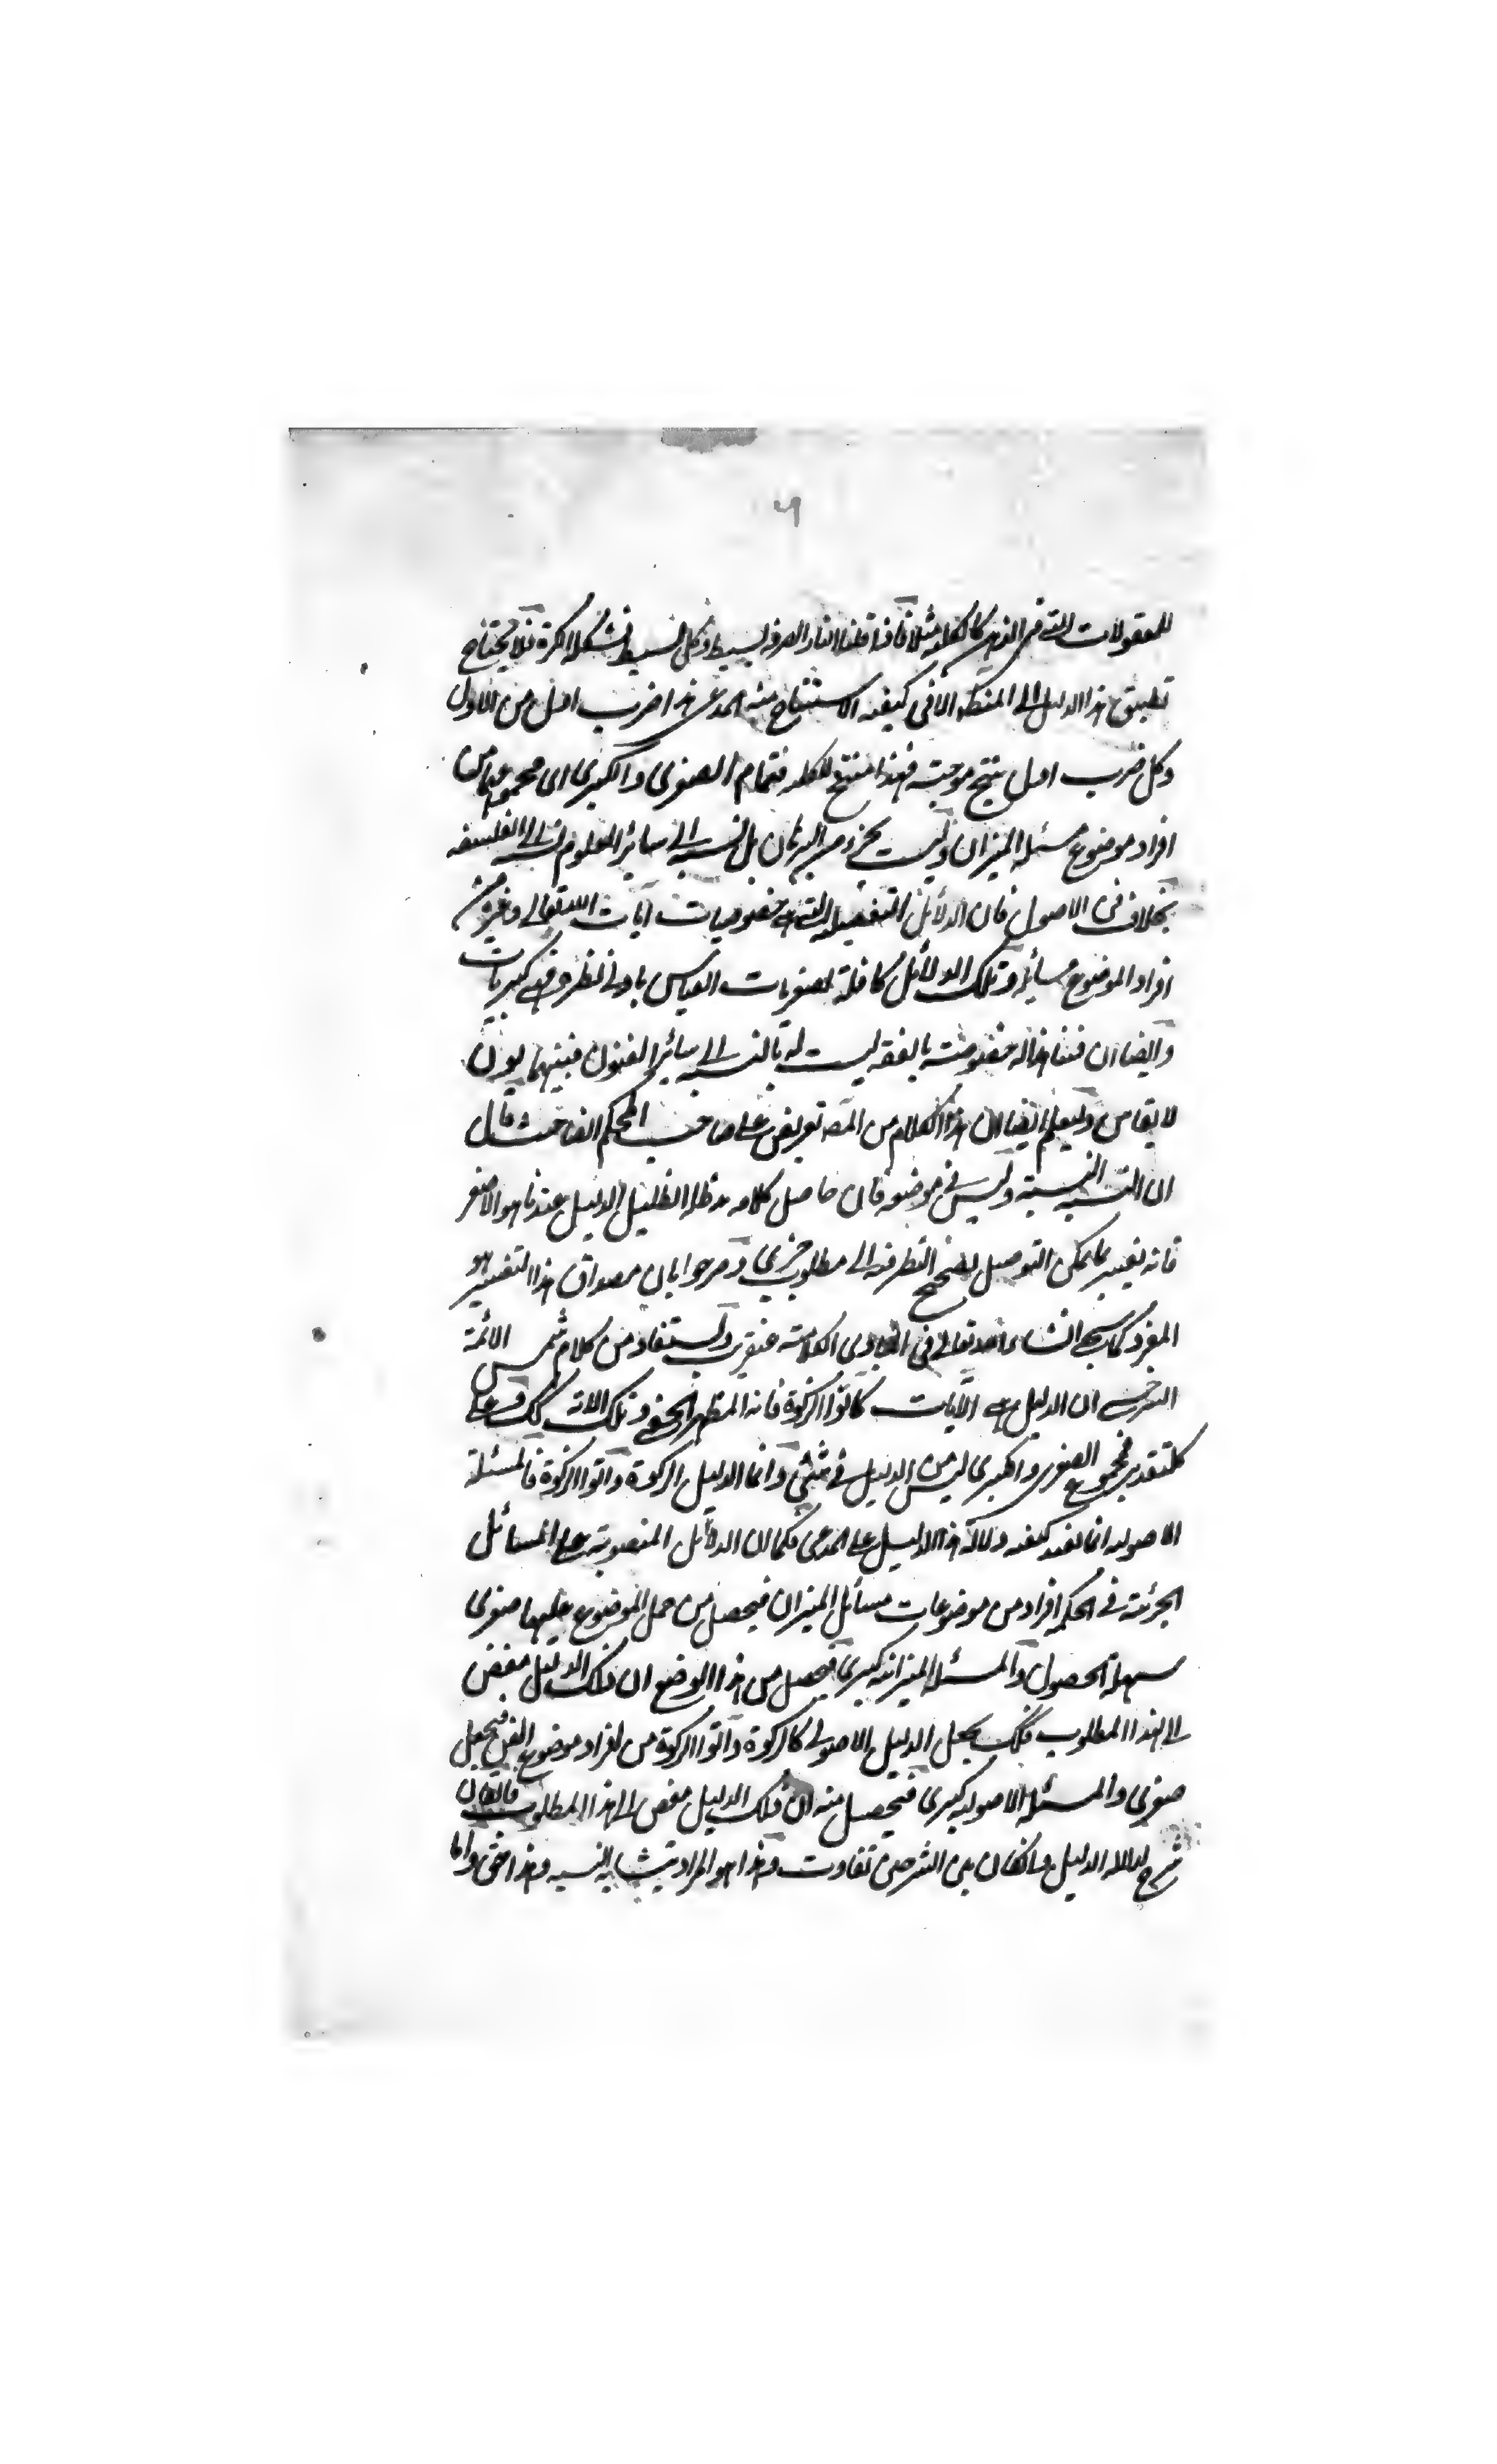 للمعقولات التى فى الذهن كالكلية مثلا فاذا قلنا النار الصرفه بسيط وكل بسيط شكله الكرة فلا يحتاج
تطبيق هذا الدليل الى المنطق الا فى كيفية الاستنتاج منه المدعى هذا ضرب اول من الاول
وكل ضرب اول ينتج موجبة فهذا منتج للكلية فتمام الصغرى والكبرى اى مجموعهما من
افراد موضوع مسئلة الميزان وليست بجزء من البرهان بل نسبته الى سائر العلوم نسبته الى الفلسفه
بخلاف فن الاصول فان الدلائل التفصيلية التى هى خصوصيات آيات الله تعالى وغيره من
افراد الموضوع مسائله وتلك الدلائل كافلة لصغريات القياس بادنى نظر وهى كبريات
وايضا ان فننا هذا له خصوصية بالفقه ليست له بالنسبه الى سائر الفنون فبينهما بون
لا يقاس وليعلم ايضا ان هذا الكلام من المصـ تعريض على صاحب المحكم حيث قال
ان النسبة النسبة وليس فى موضعه فان حاصل كلامه مد ظله الظليل الدليل عندنا هو الاصغر
فانه يفسر بما يمكن التوصل بصحيح النظر فيه الى مطلوب خبرى وصرحوا بان مصداق هذا التفسير هو
المفرد كما سيجئ انشاء الله تعالى فى المبادى الكلامية عنقريب ويستفاد من كلام شمس الائمة
السرخسى ان الدليل هى الآيات كآتوا الزكوة فانه المظهر للحكم وتلك الآية كك وعلى
كل تقدير فمجموع الصغرى والكبرى ليس من الدليل فى شئ وانما الدليل الزكوة وآتوا الزكوة فالمسئلة
الاصولية انما تفيد كيفية دلالة هذا الدليل على المدعى فكما ان الدلائل المنصوبة على المسائل
الجزئية فى الحكمة افراد من موضوعات مسائل الميزان فيحصل من حمل الموضوع عليها صغرى
سهلة الحصول والمسئلة الميزانية كبرى فيحصل من هذا الوضع ان ذلك الدليل مفض
الى هذا المطلوب فكك يجعل الدليل الاصولى كالزكوة وآتوا الزكوة من افراد موضوع الفن فيجعل
صغرى والمسئلة الاصولية كبرى فيتحصل منه ان ذلك الدليل مفض الى هذا المطلوب فالفنان
شرح لدلالة الدليل وان كان بين الشرحين تفاوت وهذا هو المراد بتشابه النسبه وهذا حق واما